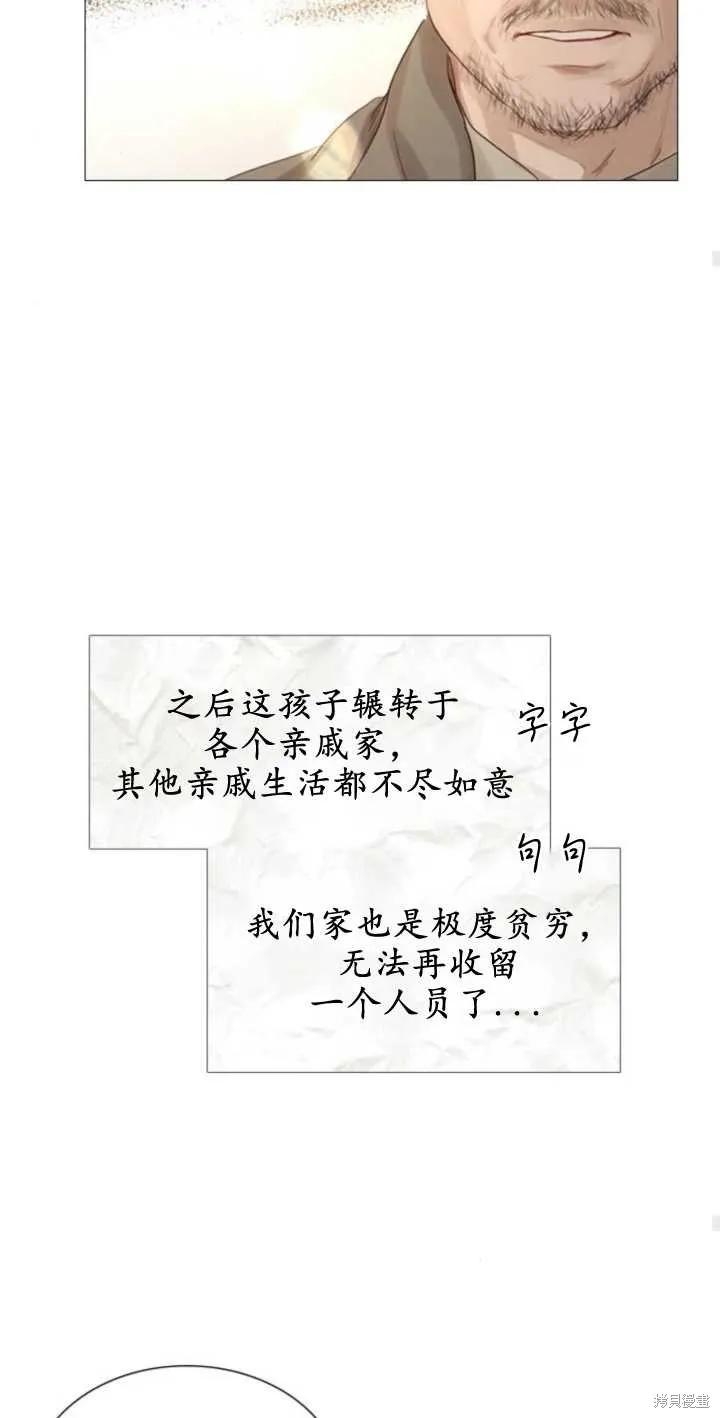 之后这孩子辗转于
各个亲戚家，
其他亲戚生活都不尽如意
字字
句句
我们家也是极度贫穷，
无法再收留
一个人员了...
拷貝漫畫